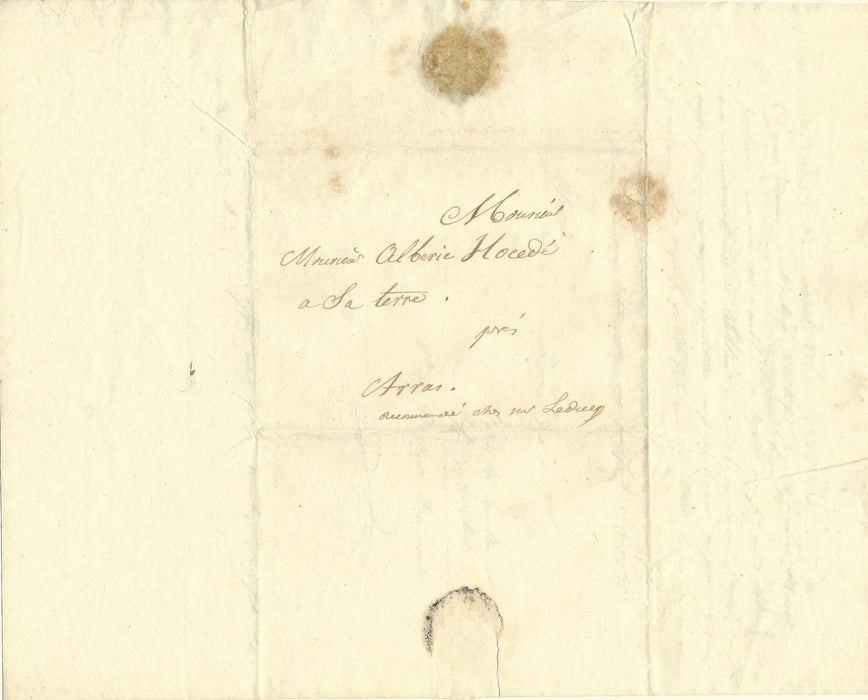 Monsieur
Monsieur Alberic Hocedé
a Sa terre.
prés
Arras.
recommandé chez mr Leducq